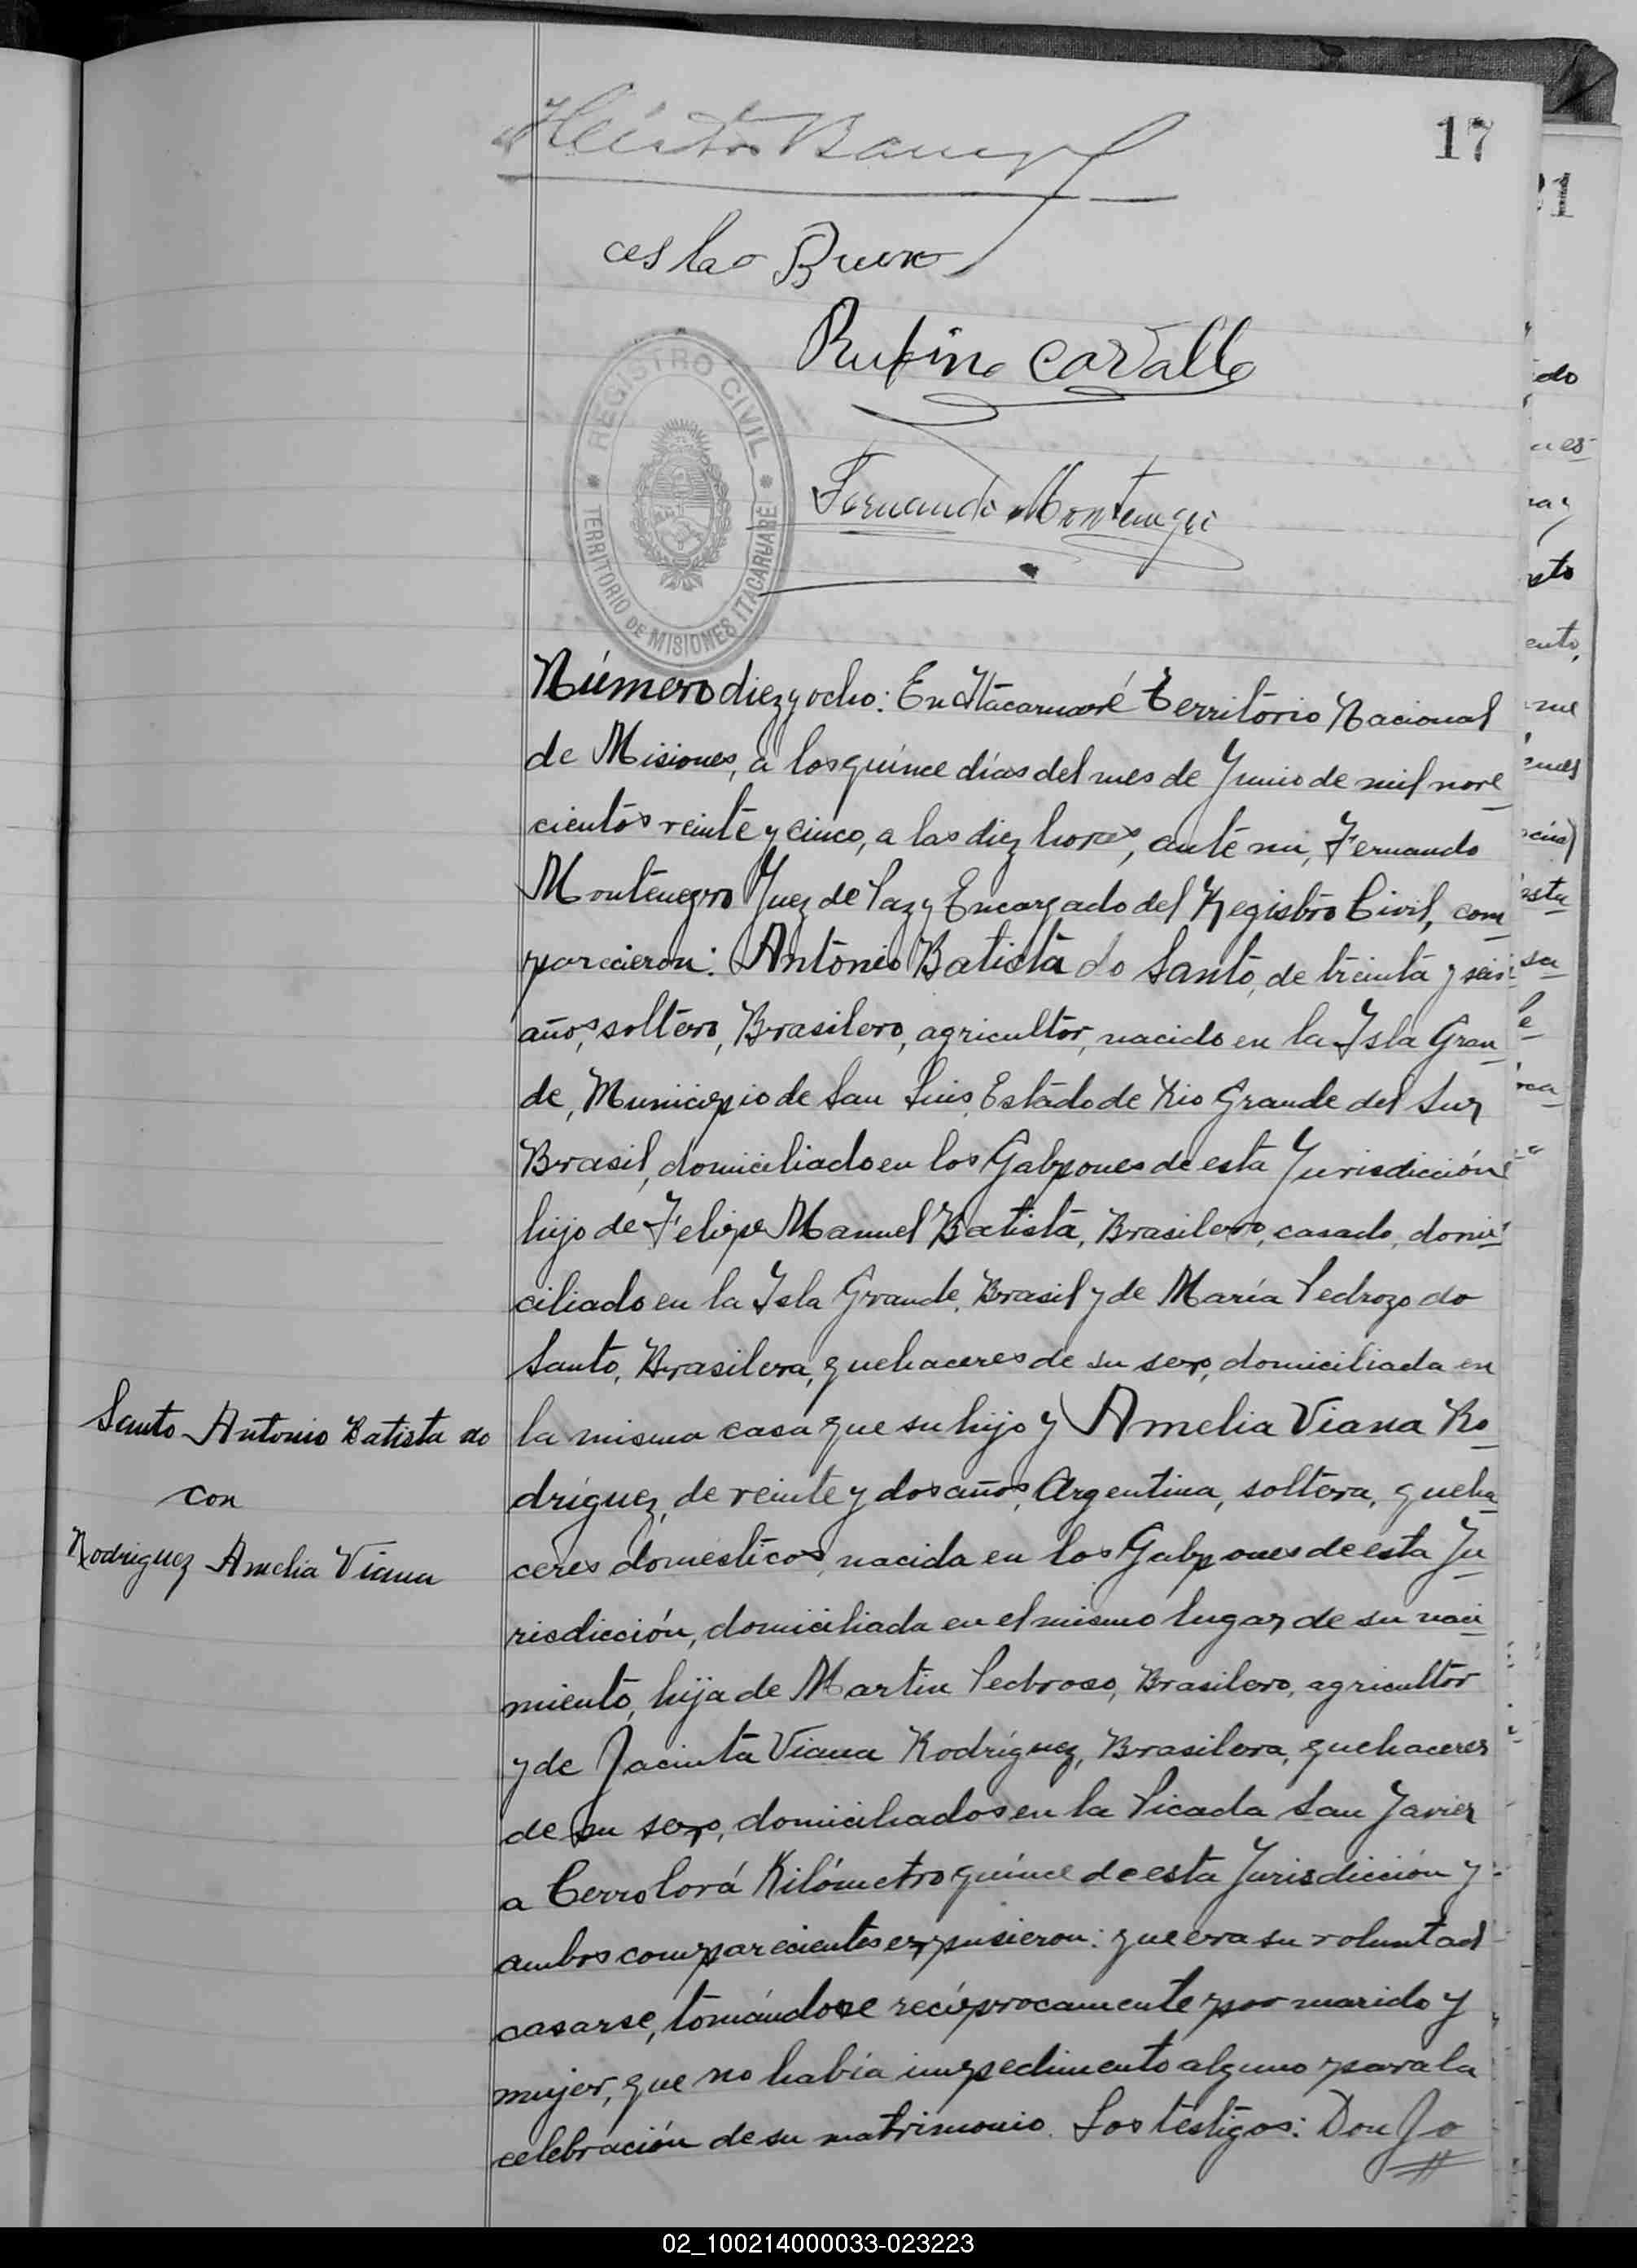 17
ceslao Bueno
Rufino Carvallo
REGISTRO CIVIL
TERRITORIO DE MISIONES ITACARUARÉ
Fernando Montenegro
Número diez y ocho: En Itacaruaré Territorio Nacional
de Misiones, a los quince días del mes de Junio de mil nove
cientos veinte y cinco, a las diez horas, ante mi, Fernando
Montenegro Juez de Paz y Encargado del Registro Civil, com
parecieron: Antonio Batista do Santo, de treinta y seis
años, soltero, Brasilero, agricultor, nacido en la Isla Gran
de, Municipio de San Luis, Estado de Rio Grande del Sur
Brasil, domiciliado en los Galpones de esta Jurisdicción
hijo de Felipe Manuel Batista, Brasilero, casado, domi
ciliado en la Isla Grande, Brasil y de María Pedrozo do
Santo, Brasilera, quehaceres de su sexo, domiciliada en
la misma casa que su hijo y Amelia Viana Ro
dríguez, de veinte y dos años, Argentina, soltera, queha
ceres domesticos, nacida en los Galpones de esta Ju
risdicción, domiciliada en el mismo lugar de su naci
miento, hija de Martin Pedroso, Brasilero, agricultor
y de Jacinta Viana Rodríguez, Brasilera, quehaceres
de su sexo, domiciliados en la Picada San Javier
a Cerro Corá Kilómetro quince de esta Jurisdicción y
ambos comparecientes expusieron: que era su voluntad
casarse, tomándose recíprocamente por marido y
mujer, que no había impedimento alguno para la
celebración de su matrimonio. Los testigos: Don Jo
Santo Antonio Batista do
con
Rodriguez Amelia Viana
02_100214000033-023223